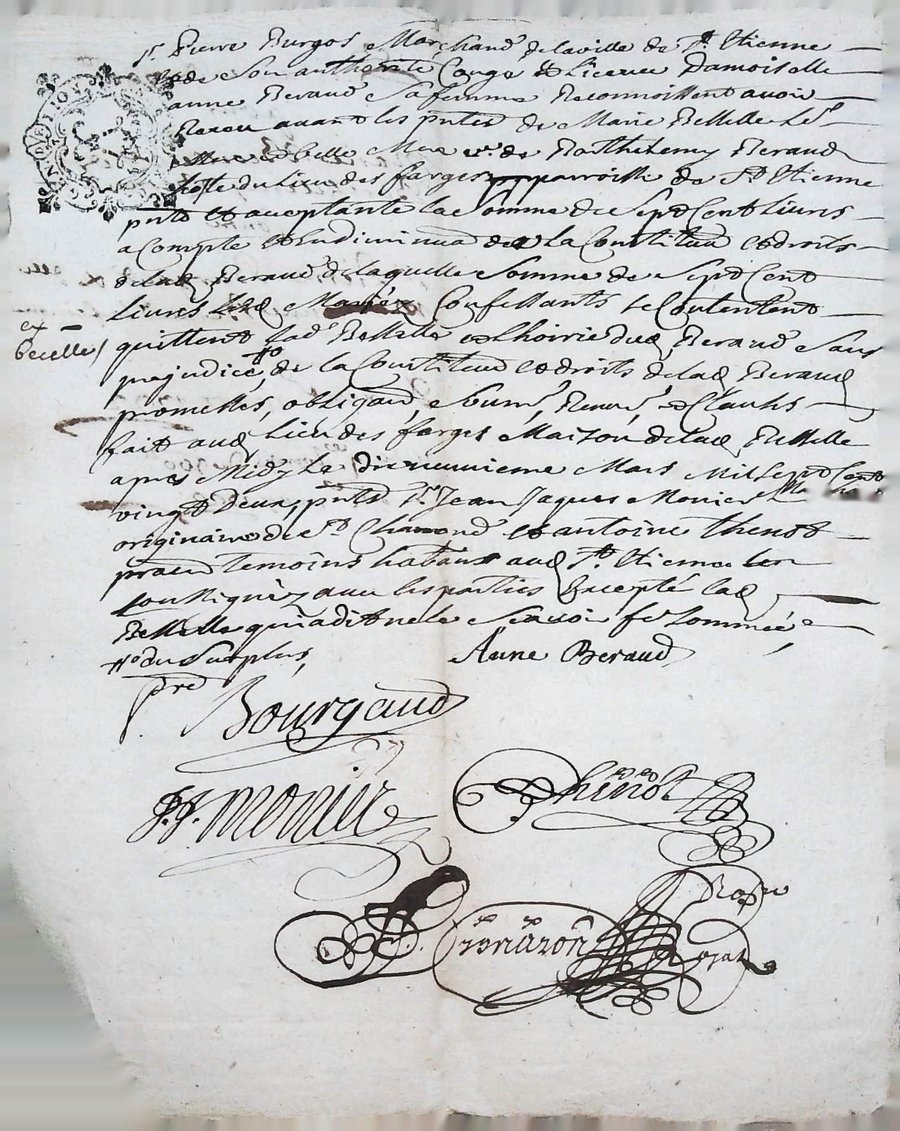 Sr. Pierre Burgos Marchand de la ville de St. Etienne
& de son authorité Congé & Licence Damoiselle
anne Beraud sa femme Reconnoissent avoir
Receu avant les pntes de Marie Bellelle
Mere & belle Mere de Barthelemy Beraud
hoste du lieu des farges parroisse de St Etienne
pnte et aceptante la Somme de Sept Cent Livres
a Compte et en diminuà de la Constituà & droits
de lad Beraud de laquelle Somme de Sept Cent
Livres Lesd Mariés Confessants se Contentent
quittent lad. Bellelle & Lhoirie dud Beraud Sans
prejudice de la Constituà & droits de lad Beraud
promettes, obligand, Soums, Renons, & Clauses
fait aud lieu des farges Maison de lad Bellelle
apres Midy le dixneuvieme Mars Mil Sept Cent
vingt Deux, pnts Sr. Jean Jaques Monier
originaire de St. Chamond et antoine Thenot
prat. temoins habtans aud St. Etienne
soussignéz avec les parties Excepté lad
Bellelle qui a dit ne le Scavoir fe Sommée
du Surplus,
Anne Beraud
Bourgaud
J.J. monier
Thinot